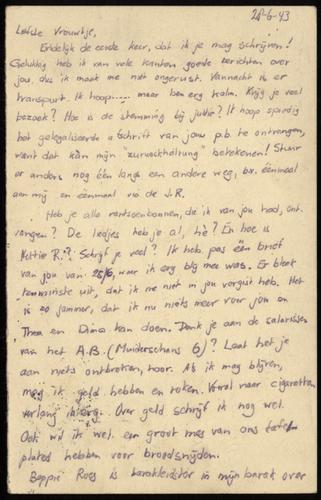 28-6-43
Liefste Vrouwtje,
Eindelijk de eerste keer, dat ik je mag schrijven!
Gelukkig heb ik van vele kanten goede berichten over
jou, dus ik maak me niet ongerust. Vannacht is er
transport. Ik hoop..... maar ben erg kalm. Krijg je veel
bezoek? Hoe is de stemming bij jullie? Ik hoop spoedig
het gelegaliseerde afschrift van jouw p.b. te ontvangen,
want dat kan mijn "zurückhaltung" betekenen! Stuur
er anders nog één langs een andere weg, bv. éénmaal
aan mij en éénmaal via de J.R.
Heb je alle rantsoenbonnen, die ik van jou had, ont-
vangen? De liedjes heb je al, hè? En hoe is
R.? Schrijf je veel? Ik heb pas één brief
van jou van 25/6, waar ik erg blij mee was. Er bleek
tenminste uit, dat ik me niet in jou vergist heb. Het
is zo jammer, dat ik nu niets meer voor jou en
Thea en Dina kan doen. Denk je aan de salarissen
van het A.B. (Muiderschans 6)? Laat het je
aan niets ontbreken, hoor. Als ik mag blijven,
mag ik geld hebben en roken. Vooral naar cigaretten
verlang ik erg. Over geld schrijf ik nog wel.
Ook wil ik wel een groot mes van ons
hebben voor broodsnijden.
Beppie Roes is barakleidster in mijn barak over